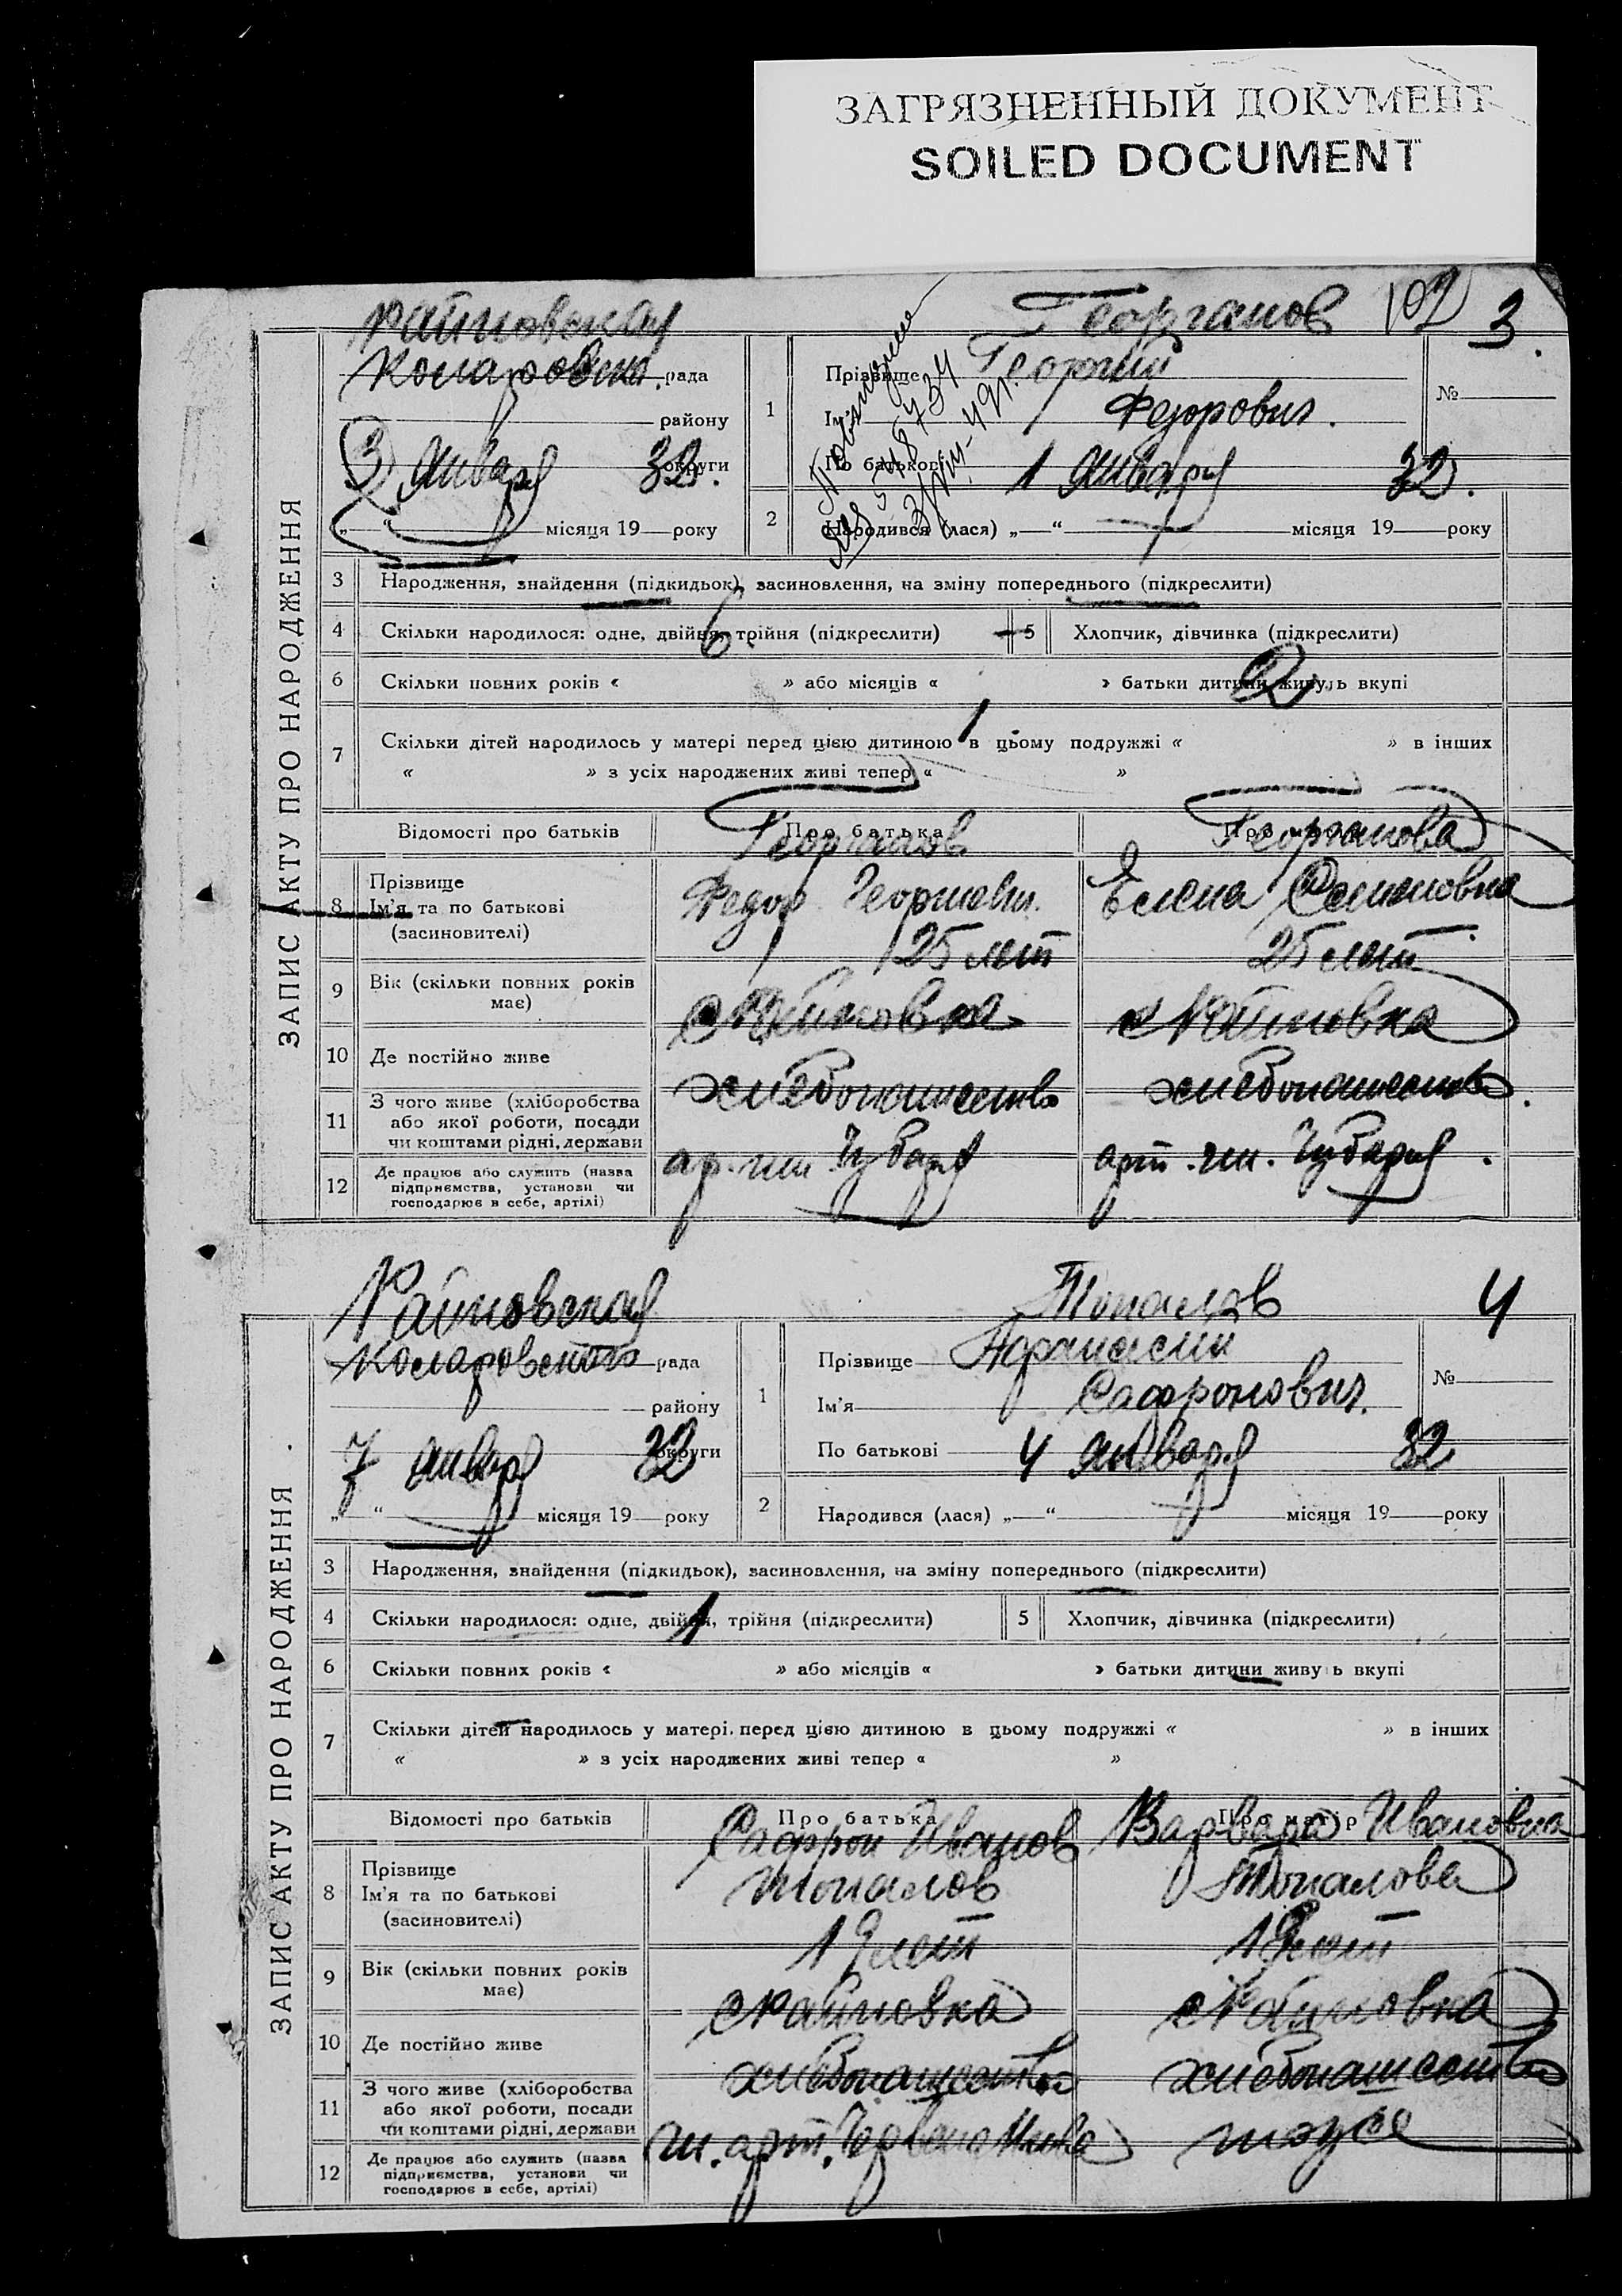 ЗАГРЯЗНЕННЫЙ ДОКУМЕНТ
SOILED DOCUMENT
Райновская
Коларовский рада
району
3 Января 32. округи
„ “ місяця 19 року
107 3
1 Георганов
Прізвище Георгий
Ім'я Федорович.
По батькові
№
2 1 Января 32.
Народився (лася) „ “ місяця 19 року
ЗАПИС АКТУ ПРО НАРОДЖЕННЯ
3 Народження, знайдення (підкидьок), засиновлення, на зміну попереднього (підкреслити)
4 Скільки народилося: одне, двійня, трійня (підкреслити) 5 Хлопчик, дівчинка (підкреслити)
6 Скільки повних років « » або місяців « » батьки дитини живуть вкупі
7 Скільки дітей народилось у матері перед цією дитиною в цьому подружжі « » в інших
« » з усіх народжених живі тепер « »
Відомості про батьків Про батька Про матір
8 Прізвище
Ім'я та по батькові
(засиновителі)
Георганов Георганова
Федор Георгиевич. Елена Семеновна
9 Вік (скільки повних років
має)
25 лет 25 лет
10 Де постійно живе
с Райновка с Райновка
11 З чого живе (хліборобства
або якої роботи, посади
чи коштами рідні, держави
хлебопашество хлебопашество.
12 Де працює або служить (назва
підприємства, установи чи
господарює в себе, артілі)
ар. им. Чубаря арт. им. Чубаря.
Райновская
Коларовского рада
району
7 Января 32 округи
„ “ місяця 19 року
4
1 Топалов
Прізвище Афанасий
Ім'я Сафронович.
По батькові
№
2 4 Января 32
Народився (лася) „ “ місяця 19 року
ЗАПИС АКТУ ПРО НАРОДЖЕННЯ
3 Народження, знайдення (підкидьок), засиновлення, на зміну попереднього (підкреслити)
4 Скільки народилося: одне, двійня, трійня (підкреслити) 5 Хлопчик, дівчинка (підкреслити)
6 Скільки повних років « » або місяців « » батьки дитини живуь вкупі
7 Скільки дітей народилось у матері перед цією дитиною в цьому подружжі « » в інших
« » з усіх народжених живі тепер « »
Відомості про батьків Про батька Про матір
8 Прізвище
Ім'я та по батькові
(засиновителі)
Сафрон Иванов Варвара Ивановна
Топалов Топалова
9 Вік (скільки повних років
має)
19 лет 19 лет
10 Де постійно живе
с Райновка с Райновка
11 З чого живе (хліборобства
або якої роботи, посади
чи коштами рідні, держави
хлебопашество хлебопашество
12 Де працює або служить (назва
підприємства, установи чи
господарює в себе, артілі)
чл. арт. Червона Нива тоже